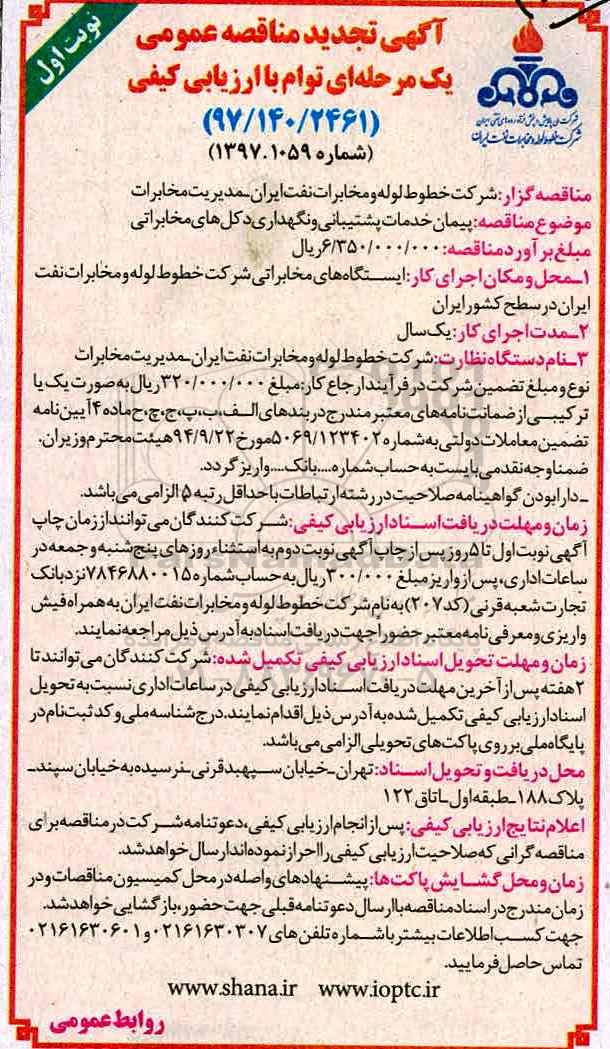 نوبت اول
آگهی تجدید مناقصه عمومی
یک مرحله‌ای توام با ارزیابی کیفی
(۹۷/۱۴۰/۲۴۶۱)
(شماره ۱۳۹۷.۱۰۵۹)
شرکت ملی پالایش و پخش فرآورده‌های نفتی ایران
شرکت خطوط لوله و مخابرات نفت ایران
مناقصه گزار: شرکت خطوط لوله و مخابرات نفت ایران ـ مدیریت مخابرات
موضوع مناقصه: پیمان خدمات پشتیبانی و نگهداری دکل های مخابراتی
مبلغ برآورد مناقصه: ۶/۳۵۰/۰۰۰/۰۰۰ ریال
۱ـ محل و مکان اجرای کار: ایستگاه‌های مخابراتی شرکت خطوط لوله و مخابرات نفت
ایران در سطح کشور ایران
۲ـ مدت اجرای کار: یک سال
۳ـ نام دستگاه نظارت: شرکت خطوط لوله و مخابرات نفت ایران ـ مدیریت مخابرات
نوع و مبلغ تضمین شرکت در فرآیند ارجاع کار: مبلغ ۳۲۰/۰۰۰/۰۰۰ ریال به صورت یک یا
ترکیبی از ضمانت نامه های معتبر مندرج در بندهای الف، ب، پ، ج، چ، ح ماده ۴ آیین نامه
تضمین معاملات دولتی به شماره ۵۰۶۹/۱۲۳۴۰۲ مورخ ۹۴/۹/۲۲ هیئت محترم وزیران.
ضمنا وجه نقد می بایست به حساب شماره .... بانک .... واریز گردد.
ـ دارا بودن گواهینامه صلاحیت در رشته ارتباطات با حداقل رتبه ۵ الزامی می باشد.
زمان و مهلت دریافت اسناد ارزیابی کیفی: شرکت کنندگان می توانند از زمان چاپ
آگهی نوبت اول تا ۵ روز پس از چاپ آگهی نوبت دوم به استثناء روزهای پنج شنبه و جمعه در
ساعات اداری، پس از واریز مبلغ ۳۰۰/۰۰۰ ریال به حساب شماره ۷۸۴۶۸۸۰۰۱۵ نزد بانک
تجارت شعبه قرنی (کد ۲۰۷) به نام شرکت خطوط لوله و مخابرات نفت ایران به همراه فیش
واریزی و معرفی نامه معتبر حضورا جهت دریافت اسناد به آدرس ذیل مراجعه نمایند.
زمان و مهلت تحویل اسناد ارزیابی کیفی تکمیل شده: شرکت کنندگان می توانند تا
۲ هفته پس از آخرین مهلت دریافت اسناد ارزیابی کیفی در ساعات اداری نسبت به تحویل
اسناد ارزیابی کیفی تکمیل شده به آدرس ذیل اقدام نمایند. درج شناسه ملی و کد ثبت نام در
پایگاه ملی بر روی پاکت های تحویلی الزامی می باشد.
محل دریافت و تحویل اسناد: تهران ـ خیابان سپهبد قرنی ـ نرسیده به خیابان سپند ـ
پلاک ۱۸۸ ـ طبقه اول ـ اتاق ۱۲۲
اعلام نتایج ارزیابی کیفی: پس از انجام ارزیابی کیفی، دعوتنامه شرکت در مناقصه برای
مناقصه گرانی که صلاحیت ارزیابی کیفی را احراز نموده اند ارسال خواهد شد.
زمان و محل گشایش پاکت ها: پیشنهادهای واصله در محل کمیسیون مناقصات و در
زمان مندرج در اسناد مناقصه با ارسال دعوتنامه قبلی جهت حضور، بازگشایی خواهد شد.
جهت کسب اطلاعات بیشتر با شماره تلفن های ۰۲۱۶۱۶۳۰۳۰۷ و ۰۲۱۶۱۶۳۰۶۰۱
تماس حاصل فرمایید.
www.shana.ir www.ioptc.ir
روابط عمومی